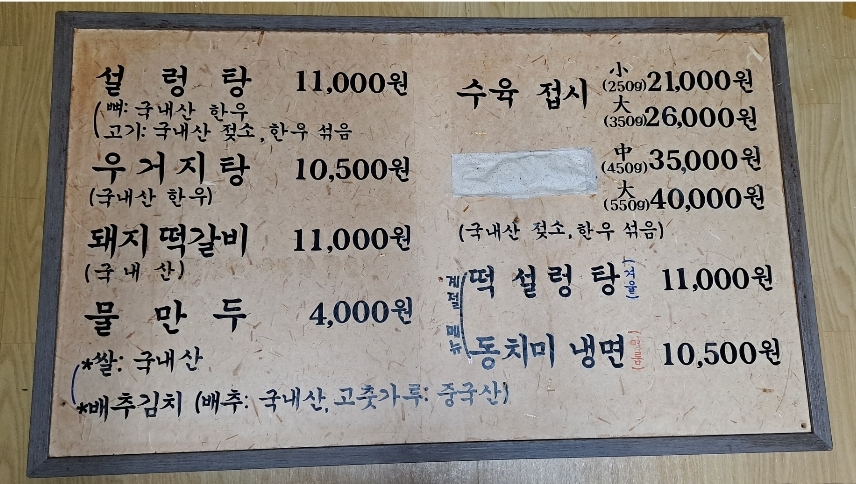 설렁탕 11,000원
(뼈: 국내산 한우
고기: 국내산 젖소, 한우 섞음
우거지탕 10,500원
(국내산 한우)
돼지떡갈비 11,000원
(국내산)
물만두 4,000원
*쌀: 국내산
*배추김치 (배추: 국내산, 고춧가루: 중국산)
수육 접시 小(250g) 21,000원
大(350g) 26,000원
中(450g) 35,000원
大(550g) 40,000원
(국내산 젖소, 한우 섞음)
계절메뉴
떡설렁탕 (겨울) 11,000원
동치미 냉면 (여름) 10,500원